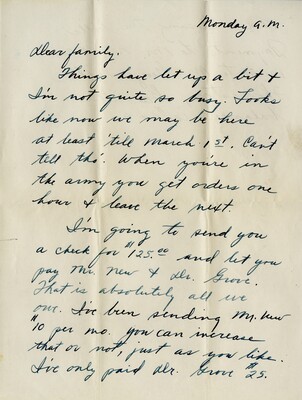 Monday a.m.
Dear family.
Things have let up a bit &
I'm not quite so busy. Looks
like now we may be here
at least 'till March 1st. Can't
tell tho'. When you're in
the army you get orders one
hour & leave the next.
I'm going to send you
a check for $125.00 and let you
pay Mr. New & Dr. Grove.
That is absolutely all we
owe. I've been sending Mr. New
$10 per mo. you can increase
that or not, just as you like.
I've only paid Dr. Grove $25.